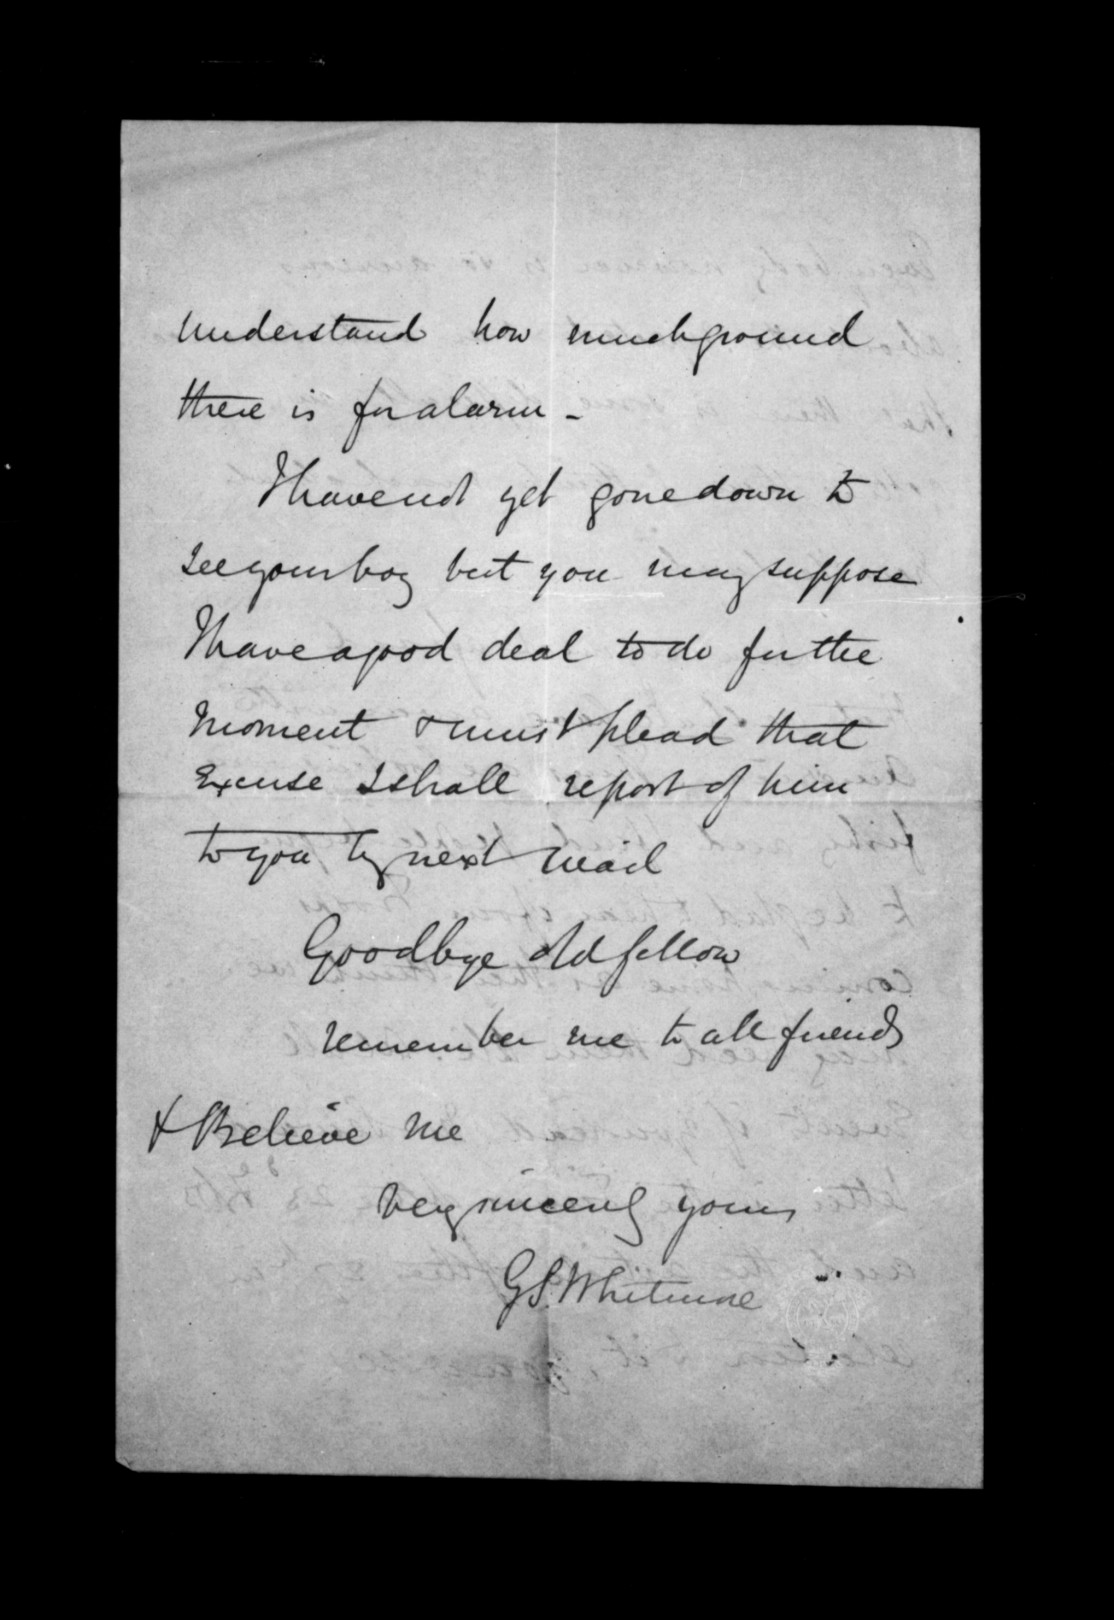 understand how much ground
there is for alarm -
I have not yet gone down to
see your boy but you may suppose
I have a good deal to do for the
moment & must plead that
excuse I shall report of him
to you by next mail
Goodbye old fellow
remember me to all friends
& Believe me
very sincerely yours
G S Whitmore